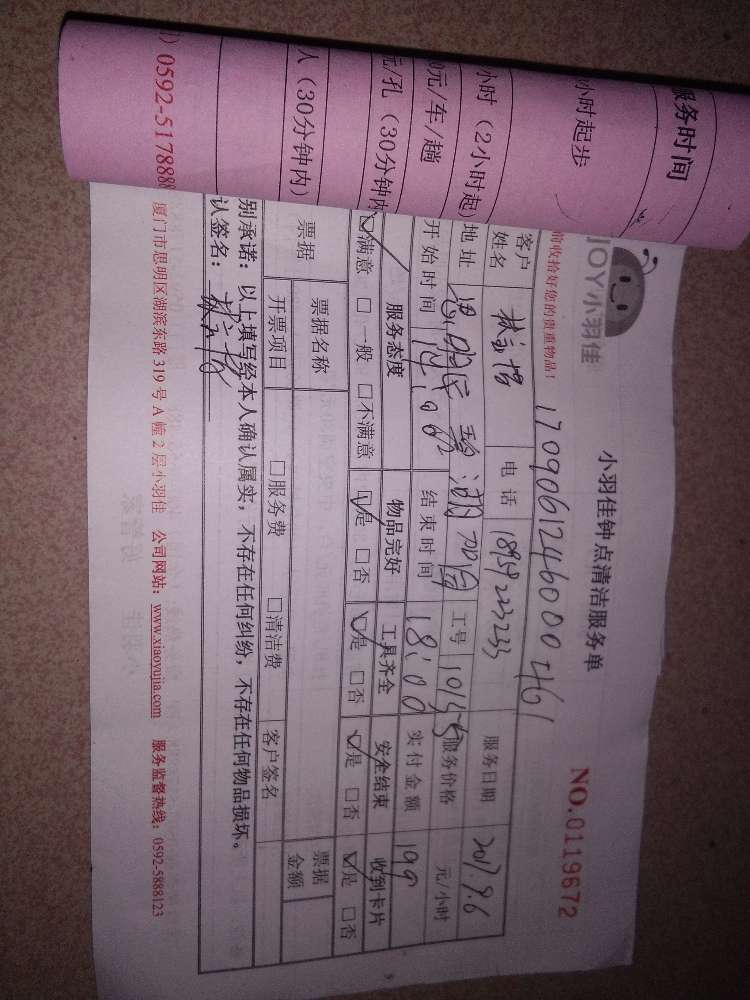 服务时间
小时起步
小时（2小时起）
0元/车/趟
元/孔（30分钟内
人（30分钟内）
0592-517888
JOY小羽佳
小羽佳钟点清洁服务单
NO.0119672
前收拾好您的贵重物品！
客户姓名 电话 服务日期 2017.9.6
地址 工号 服务价格 元/小时
开始时间 结束时间 18:00 实付金额 199
服务态度 物品完好 工具齐全 安全结束 收到卡片
☑满意 □一般 □不满意 ☑是 □否 ☑是 □否 ☑是 □否 ☑是 □否
票据 票据名称 票据金额
开票项目 □服务费 □清洁费 客户签名
别承诺：以上填写经本人确认属实，不存在任何纠纷，不存在任何物品损坏。
认签名：
厦门市思明区湖滨东路319号A幢2层小羽佳 公司网站：www.xiaoyujia.com 服务监督热线：0592-5888123